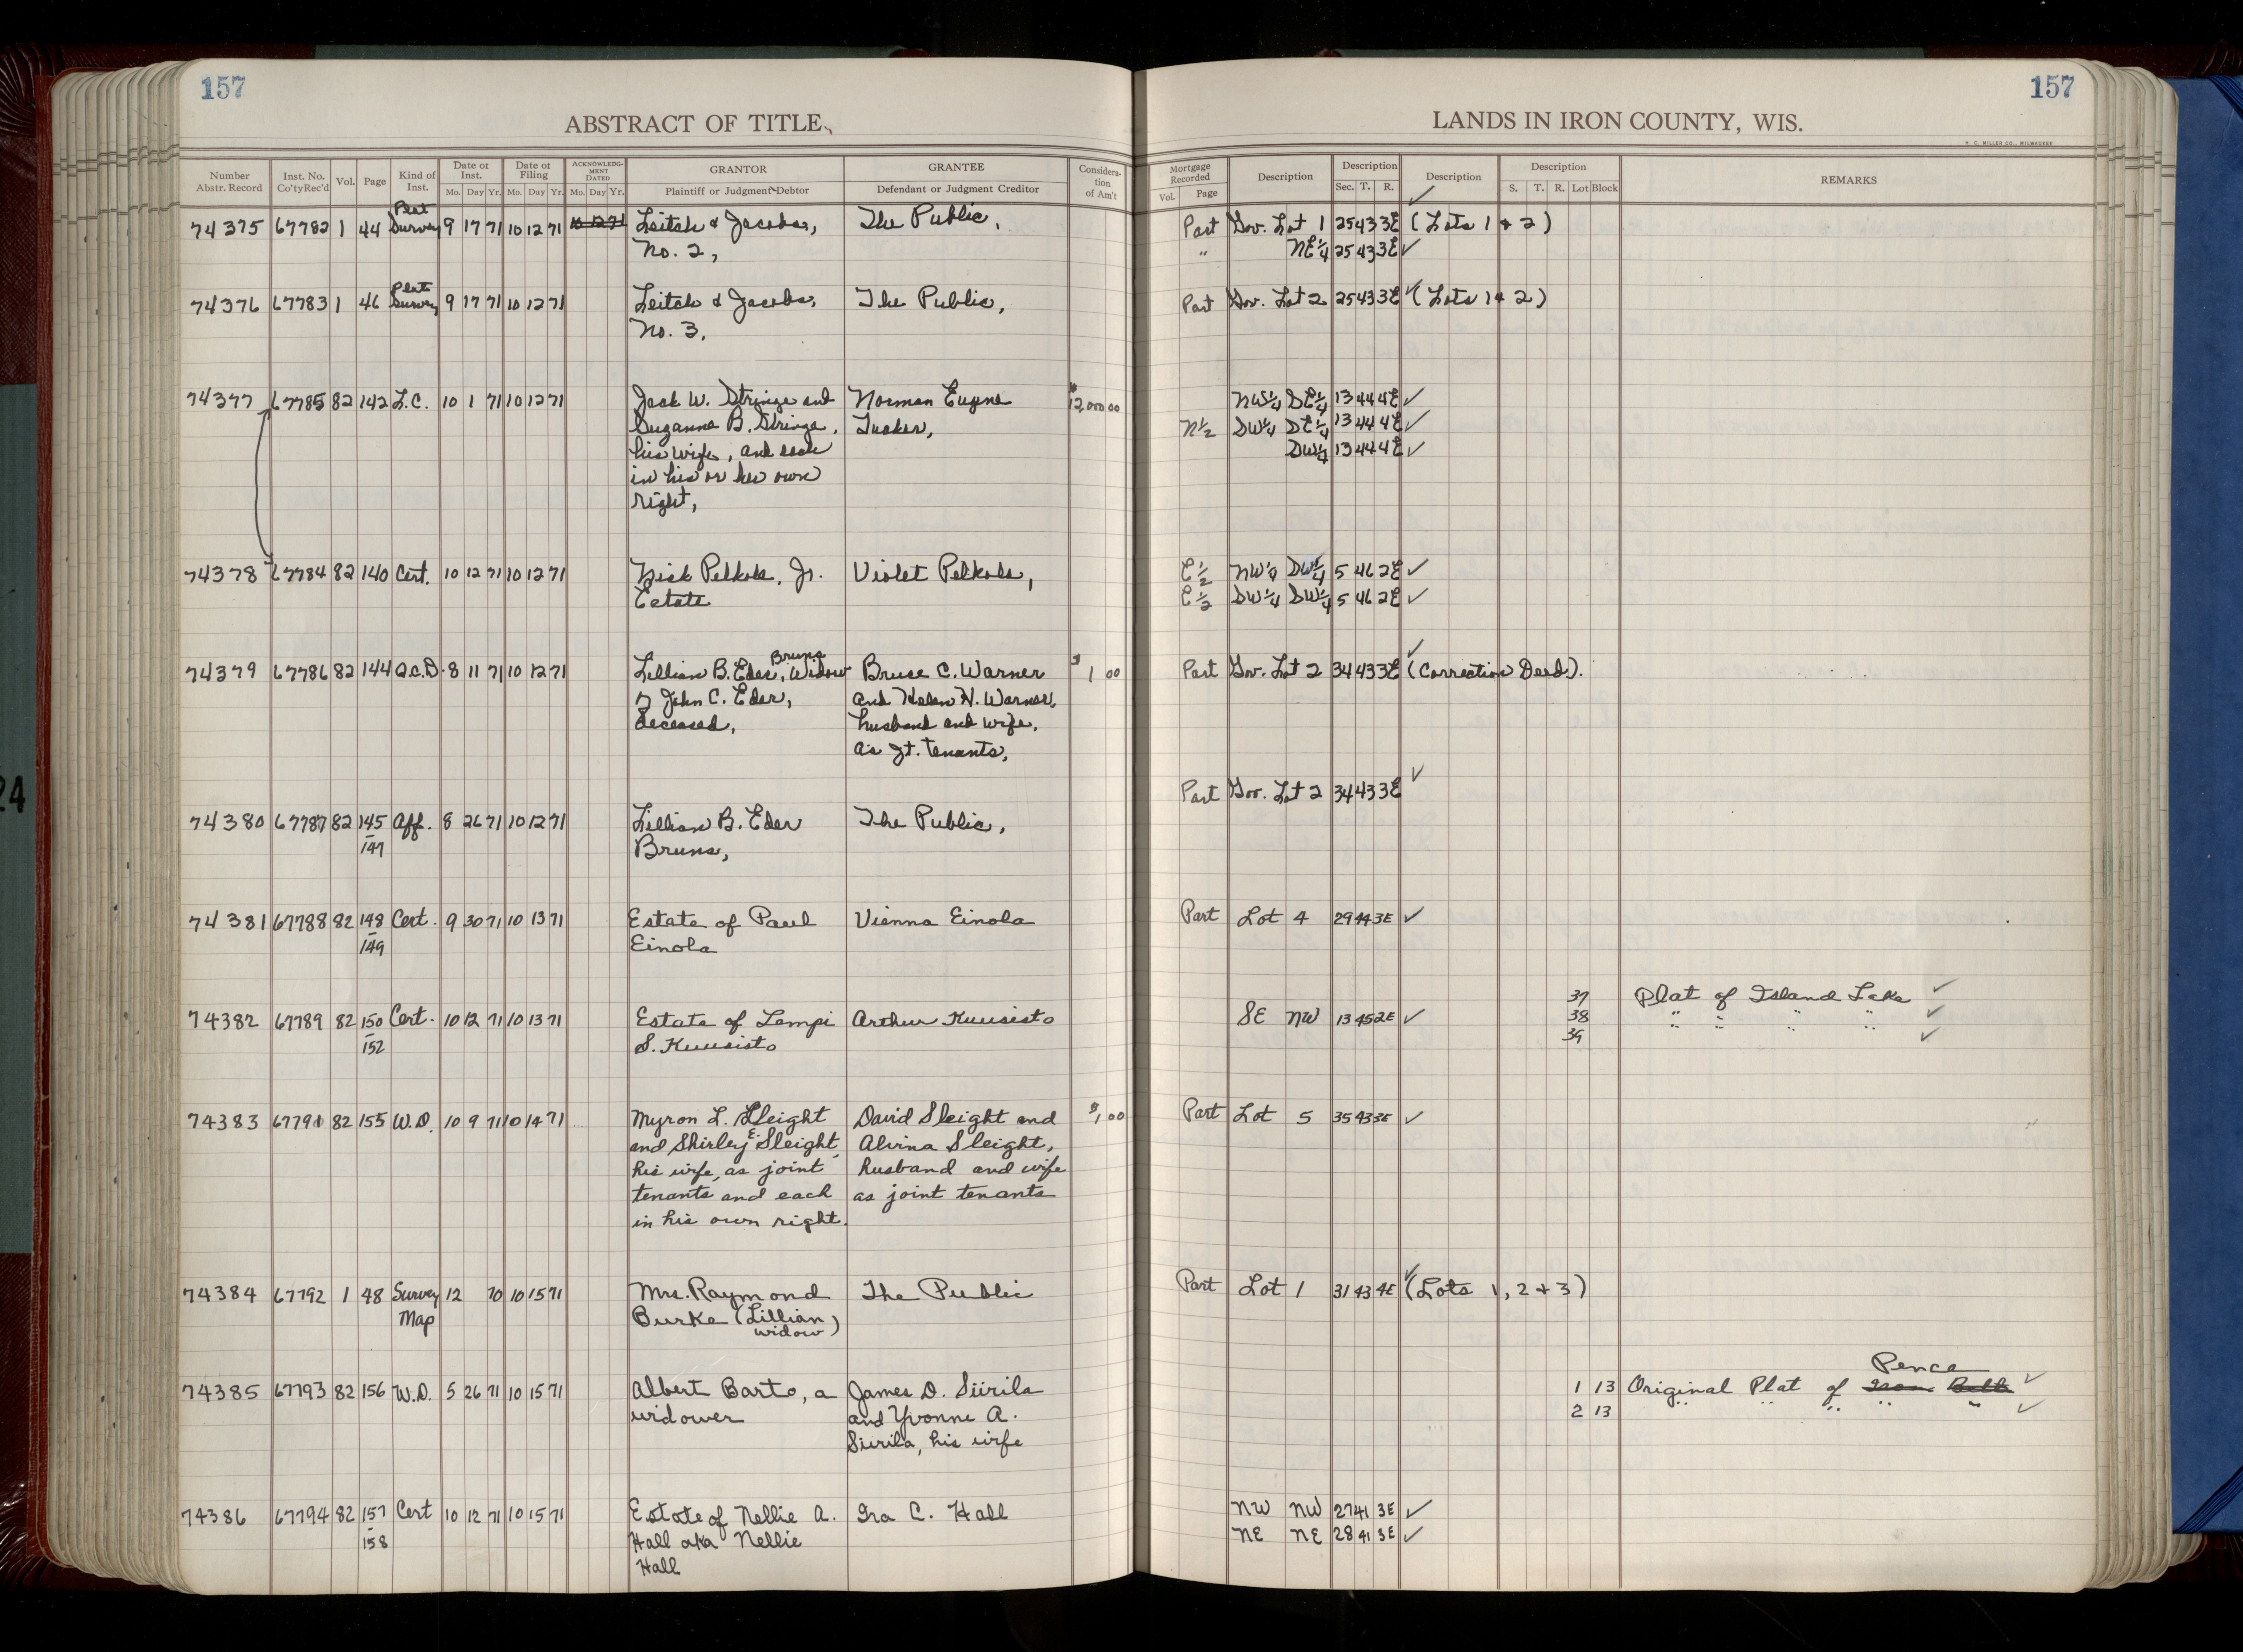 157
157
ABSTRACT OF TITLE
LANDS IN IRON COUNTY, WIS.
H. C. MILLER CO., MILWAUKEE
Number Abstr. Record | Inst. No. Co'tyRec'd | Vol. | Page | Kind of Inst. | Date of Inst. Mo. Day Yr. | Date of Filing Mo. Day Yr. | ACKNOWLEDGMENT DATED Mo. Day Yr. | GRANTOR Plaintiff or Judgment Debtor | GRANTEE Defendant or Judgment Creditor | Consideration of Am't | Mortgage Recorded Vol. Page | Description | Description Sec. T. R. | Description | Description S. T. R. Lot Block | REMARKS
Plat
74375 67782 1 44 Survey 9 17 71 10 12 71 10 12 71 Leitch & Jacobs, The Public, Part Gov. Lot 1 25 43 3E ✓ (Lots 1 & 2)
No. 2, " NE¼ 25 43 3E ✓
Plat
74376 67783 1 46 Survey 9 17 71 10 12 71 Leitch & Jacobs, The Public, Part Gov. Lot 2 25 43 3E ✓ (Lots 1 & 2)
No. 3,
74377 67785 82 142 L.C. 10 1 71 10 12 71 Jack W. Stringe and Norman Eugene $12,000 00 NW¼ SE¼ 13 44 4E ✓
Suzanne B. Stringe, Tucker, N½ SW¼ SE¼ 13 44 4E ✓
his wife, and each SW¼ 13 44 4E ✓
in his or her own
right,
74378 67784 82 140 Cert. 10 12 71 10 12 71 Nick Pelkola, Jr. Violet Pelkola, E½ NW¼ SW¼ 5 46 2E ✓
Estate E½ SW¼ SW¼ 5 46 2E ✓
Bruns
74379 67786 82 144 Q.C.D. 8 11 71 10 12 71 Lillian B. Eder, Widow Bruce C. Warner $1 00 Part Gov. Lot 2 34 43 3E ✓ (Correction Deed).
of John C. Eder, and Helen H. Warner,
deceased, husband and wife,
as jt. tenants,
Part Gov. Lot 2 34 43 3E ✓
74380 67787 82 145 Aff. 8 26 71 10 12 71 Lillian B. Eder The Public,
147 Bruns,
74381 67788 82 148 Cert. 9 30 71 10 13 71 Estate of Paul Vienna Einola Part Lot 4 29 44 3E ✓
149 Einola
37 Plat of Island Lake ✓
74382 67789 82 150 Cert. 10 12 71 10 13 71 Estate of Lempi Arthur Kuusisto SE NW 13 45 2E ✓ 38 " " " " ✓
152 S. Kuusisto 39 " " " " ✓
74383 67791 82 155 W.D. 10 9 71 10 14 71 Myron L. Sleight David Sleight and $1 00 Part Lot 5 35 43 3E ✓
and Shirley E. Sleight, Alvina Sleight,
his wife, as joint husband and wife
tenants and each as joint tenants
in his own right.
74384 67792 1 48 Survey 12 70 10 15 71 Mrs. Raymond The Public Part Lot 1 31 43 4E ✓ (Lots 1, 2 + 3)
Map Burke (Lillian
widow)
Pence
74385 67793 82 156 W.D. 5 26 71 10 15 71 Albert Barto, a James D. Siirila 1 13 Original Plat of Iron Belt ✓
widower and Yvonne A. 2 13 " " " " " ✓
Siirila, his wife
74386 67794 82 157 Cert 10 12 71 10 15 71 Estate of Nellie A. Ira C. Hall NW NW 27 41 3E ✓
158 Hall aka Nellie NE NE 28 41 3E ✓
Hall
24